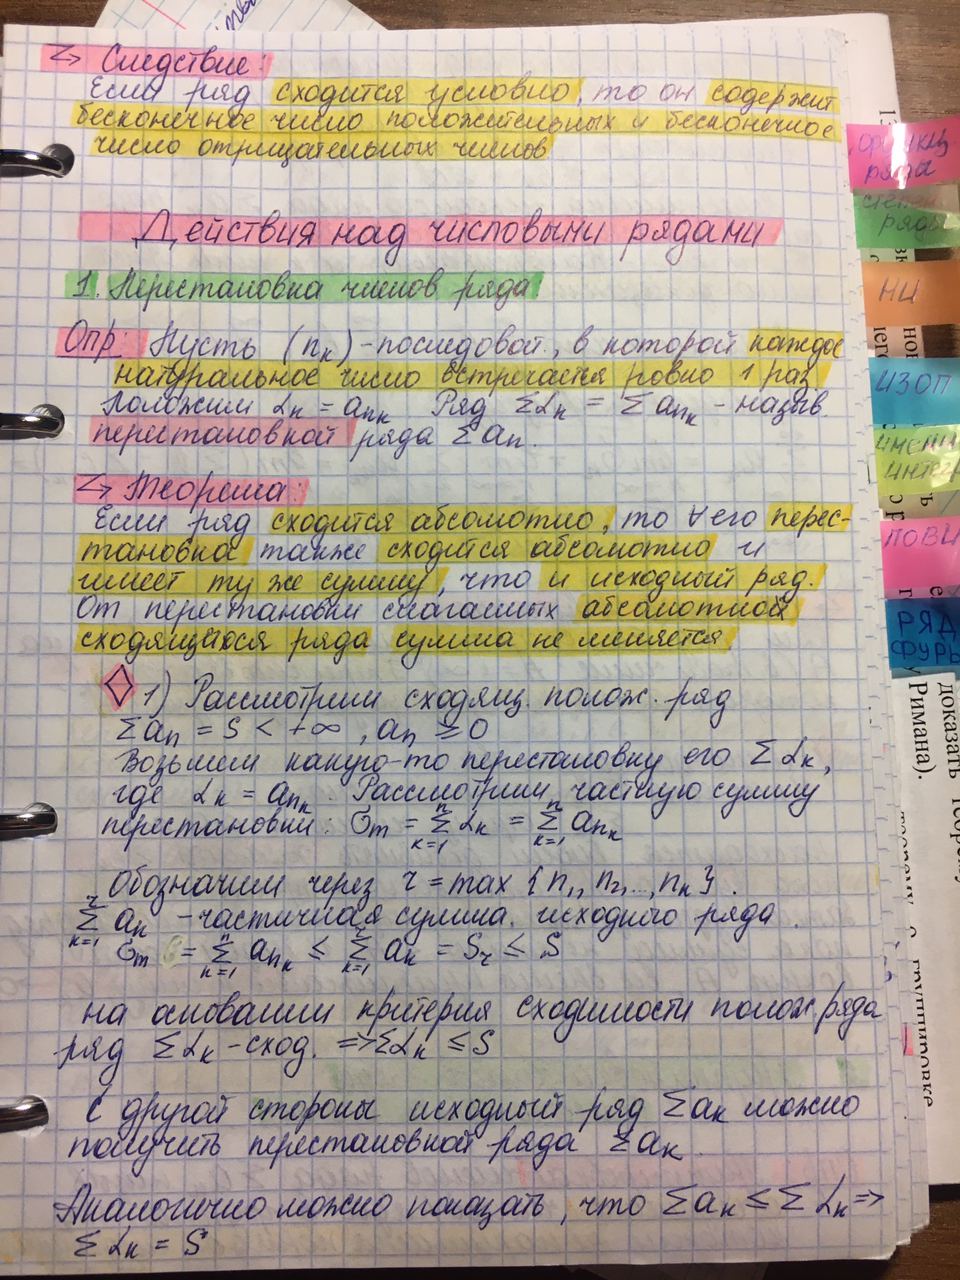 Следствие:
Если ряд сходится условно, то он содержит
бесконечное число положительных и бесконечное
число отрицательных членов
Действия над числовыми рядами
1. Перестановка членов ряда
Опр: Пусть (nₖ) - последоват, в которой каждое
натуральное число встречается ровно 1 раз
Положим αₖ = aₙₖ Ряд Σαₖ = Σaₙₖ - назыв.
перестановкой ряда Σaₙ.
Теорема:
Если ряд сходится абсолютно, то ∀ его перес-
тановка также сходится абсолютно и
имеет ту же сумму, что и исходный ряд.
От перестановки слагаемых абсолютной
сходящегося ряда сумма не меняется
1) Рассмотрим сходящ. полож. ряд
Σaₙ = S < +∞, aₙ ≥ 0
Возьмем какую-то перестановку его Σαₖ,
где αₖ = aₙₖ. Рассмотрим частную сумму
перестановки: σₘ = Σⁿₖ₌₁ αₖ = Σⁿₖ₌₁ aₙₖ
Обозначим через r = max {n₁, n₂,..., nₖ}.
Σʳₖ₌₁ aₖ - частичная сумма исходного ряда.
σₘ = Σⁿₖ₌₁ aₙₖ ≤ Σʳₖ₌₁ aₖ = Sᵣ ≤ S
на основании критерия сходимости полож. ряда
ряд Σαₖ - сход. => Σαₖ ≤ S
С другой стороны исходный ряд Σaₖ можно
получить перестановкой ряда Σaₖ
Аналогично можно показать, что Σaₖ ≤ Σαₖ =>
Σαₖ = S
ряды
ряды
НИ
ИЗОП
РЯД
ФУРЬ
доказать
Римана).
группировке